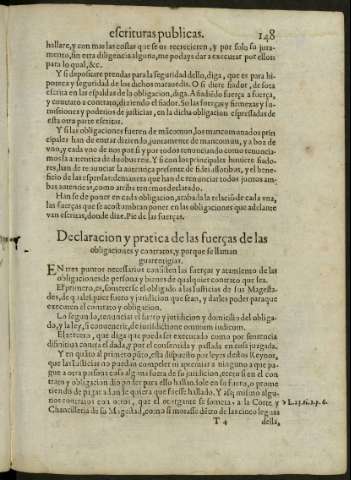 escrituras publicas. 148
hallare, y con mas las costas que se os recrecieren, y por solo su jura-
mento, sin otra diligencia alguna, me podays dar a executar por ellos
para lo qual, &c.
Y si depositare prendas para la seguridad dello, diga, que es para hi-
poteca y seguridad de los dichos marauedis. O si diere fiador, de sera
escrita en las espaldas de la obligacion, diga, Añadiēdo fuerça a fuerça,
y cōtrato a contrato, diziendo el fiador. So las fuerças y firmezas y su-
missiones y poderios de justicias, en la dicha obligacion espressadas de
esta otra parte escritas.
Y si las obligaciones fueren de mācomun, los mancomunados prin
cipales han de entrar diziendo, juntamente de mancomun, y a boz de
vno, y cada vno de nos por si y por todos renunciando como renuncia-
mos la autentica de duobus reis. Y si con los principales huuiere fiado-
res, han de renunciar la autentica presente de fideiussoribus, y el bene-
ficio de las espensas: de manera que han de renunciar todos juntos am-
bas autenticas, como arriba tenemos declarado.
Han se de poner en cada obligacion, acabada la relaciō de cada vna,
las fuerças que se acostumbran poner en las obligaciones que adelante
van escritas, donde dize. Pie de las fuerças.
Declaracion y pratica de las fuerças de las
obligaciones y contratos, y porque se llaman
guarentigias.
EN tres puntos necessarios consisten las fuerças y atamiento de las
obligaciones de persona y bienes de qualquier contrato que sea.
El primero, es, someterse el obligado a las Iusticias de sus Magesta-
des, de qualesquier fuero y juridicion que sean, y darles poder para que
executen el contrato y obligacion.
Lo segundo, renunciar el fuero y juridicion y domicilio del obliga-
do, y la ley, Si conuenerit, de iurisdictione omnium iudicum.
El tercero, que diga que pueda ser executado como por sentencia
difinitiua contra el dada, y por el consentida y passada en cosa juzgada.
Y en quāto al primero pūto, esta dispuesto por leyes destos Reynos,
que las Iusticias no puedan compeler ni apremiar a ninguno a que pa-
gue a otra persona cosa alguna fuera de su juridicion, excepto si en el con
trato y obligacion dio poder para ello hallandole en su fuero, o prome
tiendo de pagar adonde quiera que fuesse hallado. Y assi mismo algu-
nos contratos con otros, que el otorgante se someta, a la Corte y
L. 23. tit. 2. p. 6.
Chancilleria de su Magestad, como si morasse dētro de las cinco leguas
T 4 della,